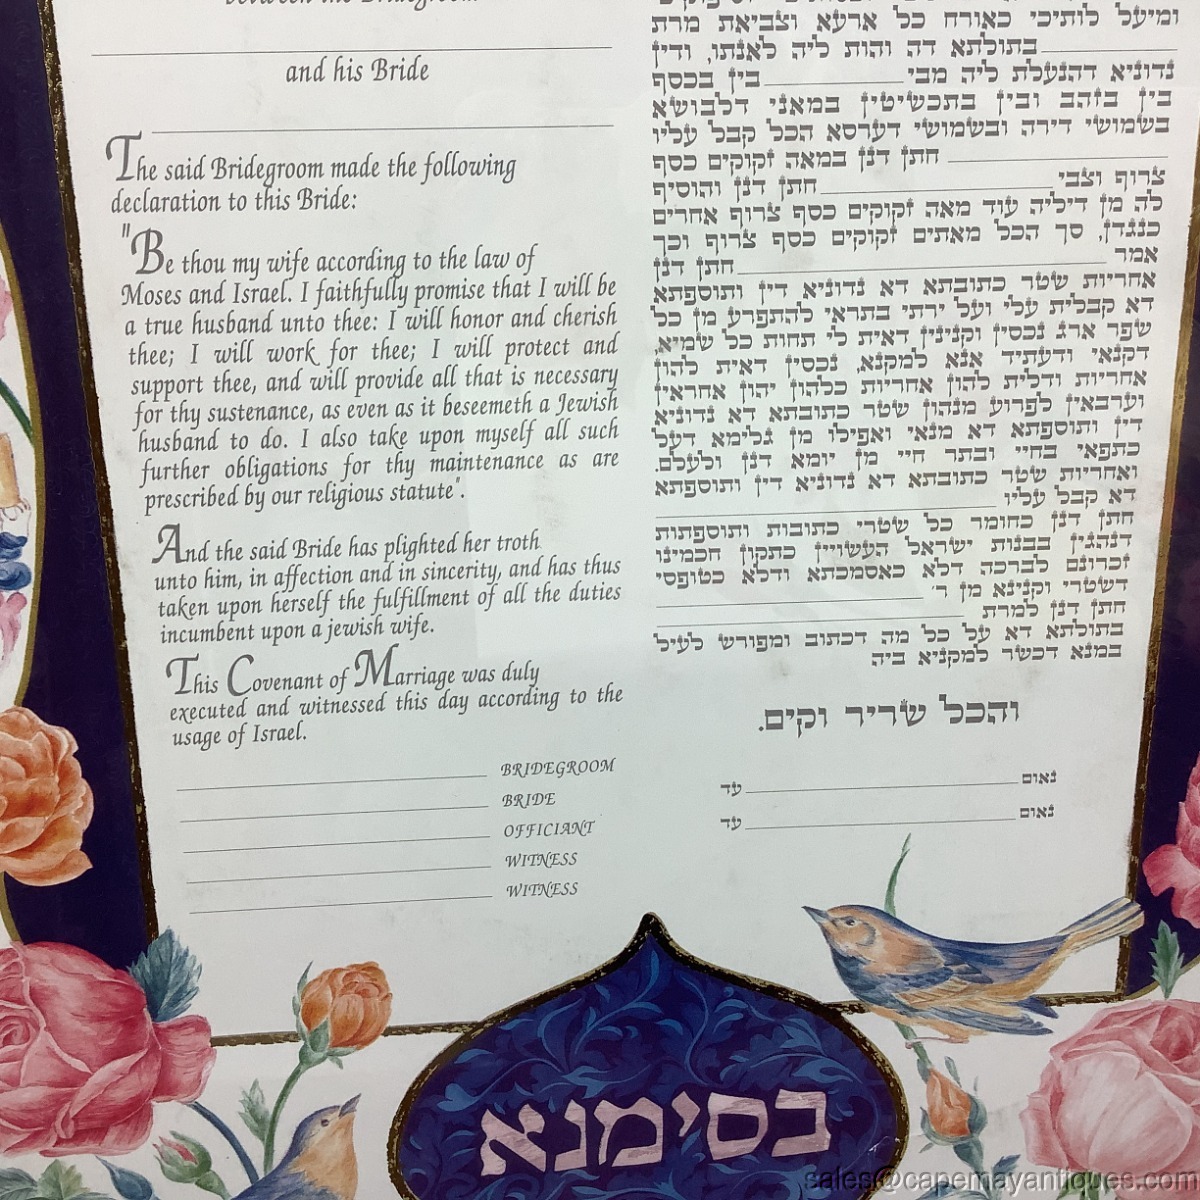 between the Bridegroom
and his Bride
The said Bridegroom made the following
declaration to this Bride:
"Be thou my wife according to the law of
Moses and Israel. I faithfully promise that I will be
a true husband unto thee: I will honor and cherish
thee; I will work for thee; I will protect and
support thee, and will provide all that is necessary
for thy sustenance, as even as it beseemeth a Jewish
husband to do. I also take upon myself all such
further obligations for thy maintenance as are
prescribed by our religious statute".
And the said Bride has plighted her troth
unto him, in affection and in sincerity, and has thus
taken upon herself the fulfillment of all the duties
incumbent upon a jewish wife.
This Covenant of Marriage was duly
executed and witnessed this day according to the
usage of Israel.
BRIDEGROOM
BRIDE
OFFICIANT
WITNESS
WITNESS
ומיעל לותיכי כאורח כל ארעא וצביאת מרת
בתולתא דה והות ליה לאנתו, ודין
נדוניא דהנעלת ליה מבי בין בכסף
בין בזהב ובין בתכשיטין במאני דלבושא
בשמושי דירה ובשמושי דערסא הכל קבל עליו
חתן דנן במאה זקוקים כסף
צרוף וצבי חתן דנן והוסיף
לה מן דיליה עוד מאה זקוקים כסף צרוף אחרים
כנגדן, סך הכל מאתים זקוקים כסף צרוף וכך
אמר חתן דנן
אחריות שטר כתובתא דא נדוניא דין ותוספתא
דא קבלית עלי ועל ירתי בתראי להתפרע מן כל
שפר ארג נכסין וקנינין דאית לי תחות כל שמיא,
דקנאי ודעתיד אנא למקנא, נכסין דאית להון
אחריות ודלית להון אחריות כלהון יהון אחראין
וערבאין לפרוע מנהון שטר כתובתא דא נדוניא
דין ותוספתא דא מנאי ואפילו מן גלימא דעל
כתפאי בחיי ובתר חיי מן יומא דנן ולעלם.
ואחריות שטר כתובתא דא נדוניא דין ותוספתא
דא קבל עליו
חתן דנן כחומר כל שטרי כתובות ותוספתות
דנהגין בבנות ישראל העשויין כתקון חכמינו
זכרונם לברכה דלא כאסמכתא ודלא כטופסי
דשטרי וקנינא מן ר'
חתן דנן למרת
בתולתא דא על כל מה דכתוב ומפורש לעיל
במנא דכשר למקניא ביה
והכל שריר וקים.
נאום עד
נאום עד
בסימנא
sales@capemayantiques.com